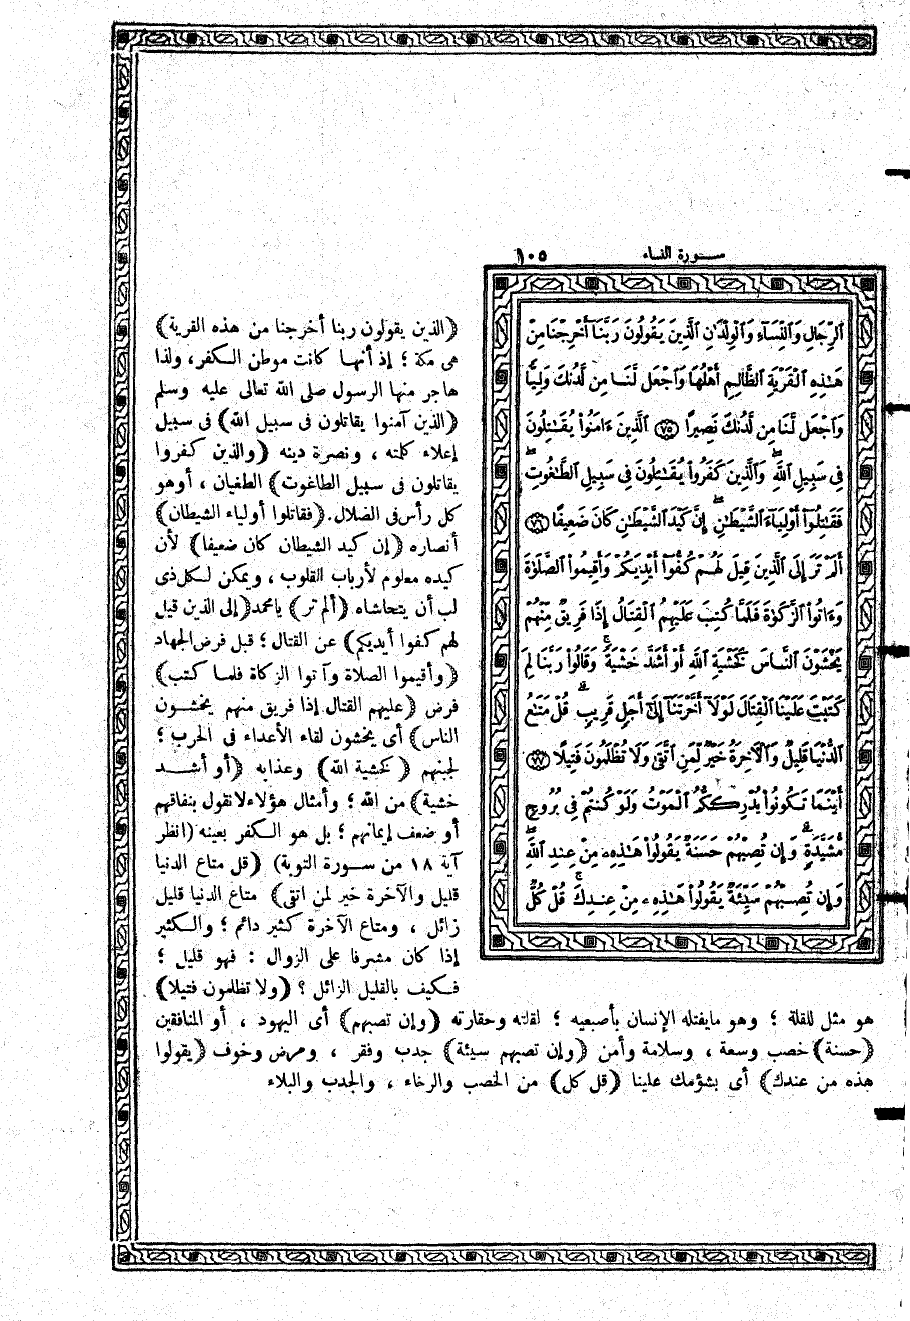 سورة النساء ١٠٥
ٱلرِّجَالِ وَٱلنِّسَآءِ وَٱلْوِلْدَٰنِ ٱلَّذِينَ يَقُولُونَ رَبَّنَآ أَخْرِجْنَا مِنْ
هَٰذِهِ ٱلْقَرْيَةِ ٱلظَّالِمِ أَهْلُهَا وَٱجْعَل لَّنَا مِن لَّدُنكَ وَلِيًّا
وَٱجْعَل لَّنَا مِن لَّدُنكَ نَصِيرًا ۝٧٥ ٱلَّذِينَ ءَامَنُوا۟ يُقَٰتِلُونَ
فِى سَبِيلِ ٱللَّهِ ۖ وَٱلَّذِينَ كَفَرُوا۟ يُقَٰتِلُونَ فِى سَبِيلِ ٱلطَّٰغُوتِ
فَقَٰتِلُوٓا۟ أَوْلِيَآءَ ٱلشَّيْطَٰنِ ۖ إِنَّ كَيْدَ ٱلشَّيْطَٰنِ كَانَ ضَعِيفًا ۝٧٦
أَلَمْ تَرَ إِلَى ٱلَّذِينَ قِيلَ لَهُمْ كُفُّوٓا۟ أَيْدِيَكُمْ وَأَقِيمُوا۟ ٱلصَّلَوٰةَ
وَءَاتُوا۟ ٱلزَّكَوٰةَ فَلَمَّا كُتِبَ عَلَيْهِمُ ٱلْقِتَالُ إِذَا فَرِيقٌ مِّنْهُمْ
يَخْشَوْنَ ٱلنَّاسَ كَخَشْيَةِ ٱللَّهِ أَوْ أَشَدَّ خَشْيَةً ۚ وَقَالُوا۟ رَبَّنَا لِمَ
كَتَبْتَ عَلَيْنَا ٱلْقِتَالَ لَوْلَآ أَخَّرْتَنَآ إِلَىٰٓ أَجَلٍ قَرِيبٍ ۗ قُلْ مَتَٰعُ
ٱلدُّنْيَا قَلِيلٌ وَٱلْءَاخِرَةُ خَيْرٌ لِّمَنِ ٱتَّقَىٰ وَلَا تُظْلَمُونَ فَتِيلًا ۝٧٧
أَيْنَمَا تَكُونُوا۟ يُدْرِككُّمُ ٱلْمَوْتُ وَلَوْ كُنتُمْ فِى بُرُوجٍ
مُّشَيَّدَةٍ ۗ وَإِن تُصِبْهُمْ حَسَنَةٌ يَقُولُوا۟ هَٰذِهِۦ مِنْ عِندِ ٱللَّهِ ۖ
وَإِن تُصِبْهُمْ سَيِّئَةٌ يَقُولُوا۟ هَٰذِهِۦ مِنْ عِندِكَ ۚ قُلْ كُلٌّ
(الذين يقولون ربنا أخرجنا من هذه القرية)
هى مكة ؛ إذ أنهـا كانت موطن الـكفر ، ولذا
هاجر منها الرسول صلى الله تعالى عليه وسلم
(الذين آمنوا يقاتلون فى سبيل الله) فى سبيل
إعلاء كلمته ، ونصرة دينه (والذين كفروا
يقاتلون فى سبيل الطاغوت) الطغيان ، أو هو
كل رأس فى الضلال . (فقاتلوا أولياء الشيطان)
أنصاره (إن كيد الشيطان كان ضعيفا) لأن
كيده معلوم لأرباب القلوب ، ويمكن لـكل ذى
لب أن يتحاشاه (ألم تر) يا محمد (إلى الذين قيل
لهم كفوا أيديكم) عن القتال ؛ قبل فرض الجهاد
(وأقيموا الصلاة وآتوا الزكاة فلمـا كتب)
فرض (عليهم القتال إذا فريق منهم يخشـون
الناس) أى يخشون لقاء الأعداء فى الحرب ؛
لجبنهم (كخشية الله) وعذابه (أو أشـد
خشية) من الله ؛ وأمثال هؤلاء لا نقول بنفاقهم
أو ضعف إيمانهم ؛ بل هو الكفر بعينه (انظر
آية ١٨ من سـورة التوبة) (قل متاع الدنيا
قليل والآخرة خير لمن اتقى) متاع الدنيا قليل
زائل ، ومتاع الآخرة كثير دائم ؛ والـكثير
إذا كان مشرفا على الزوال : فهو قليل ؛
فـكيف بالقليل الزائل ؟ (ولا تظلمون فتيلا)
هو مثل للقلة ؛ وهو ما يفتله الإنسان بأصبعيه ؛ لقلته وحقارته (وإن تصبهم) أى اليهود ، أو المنافقين
(حسنة) خصب وسعة ، وسلامة وأمن (وإن تصبهم سيئة) جدب وفقر ، ومرض وخوف (يقولوا
هذه من عندك) أى بشؤمك علينا (قل كل) من الخصب والرخاء ، والجدب والبلاء